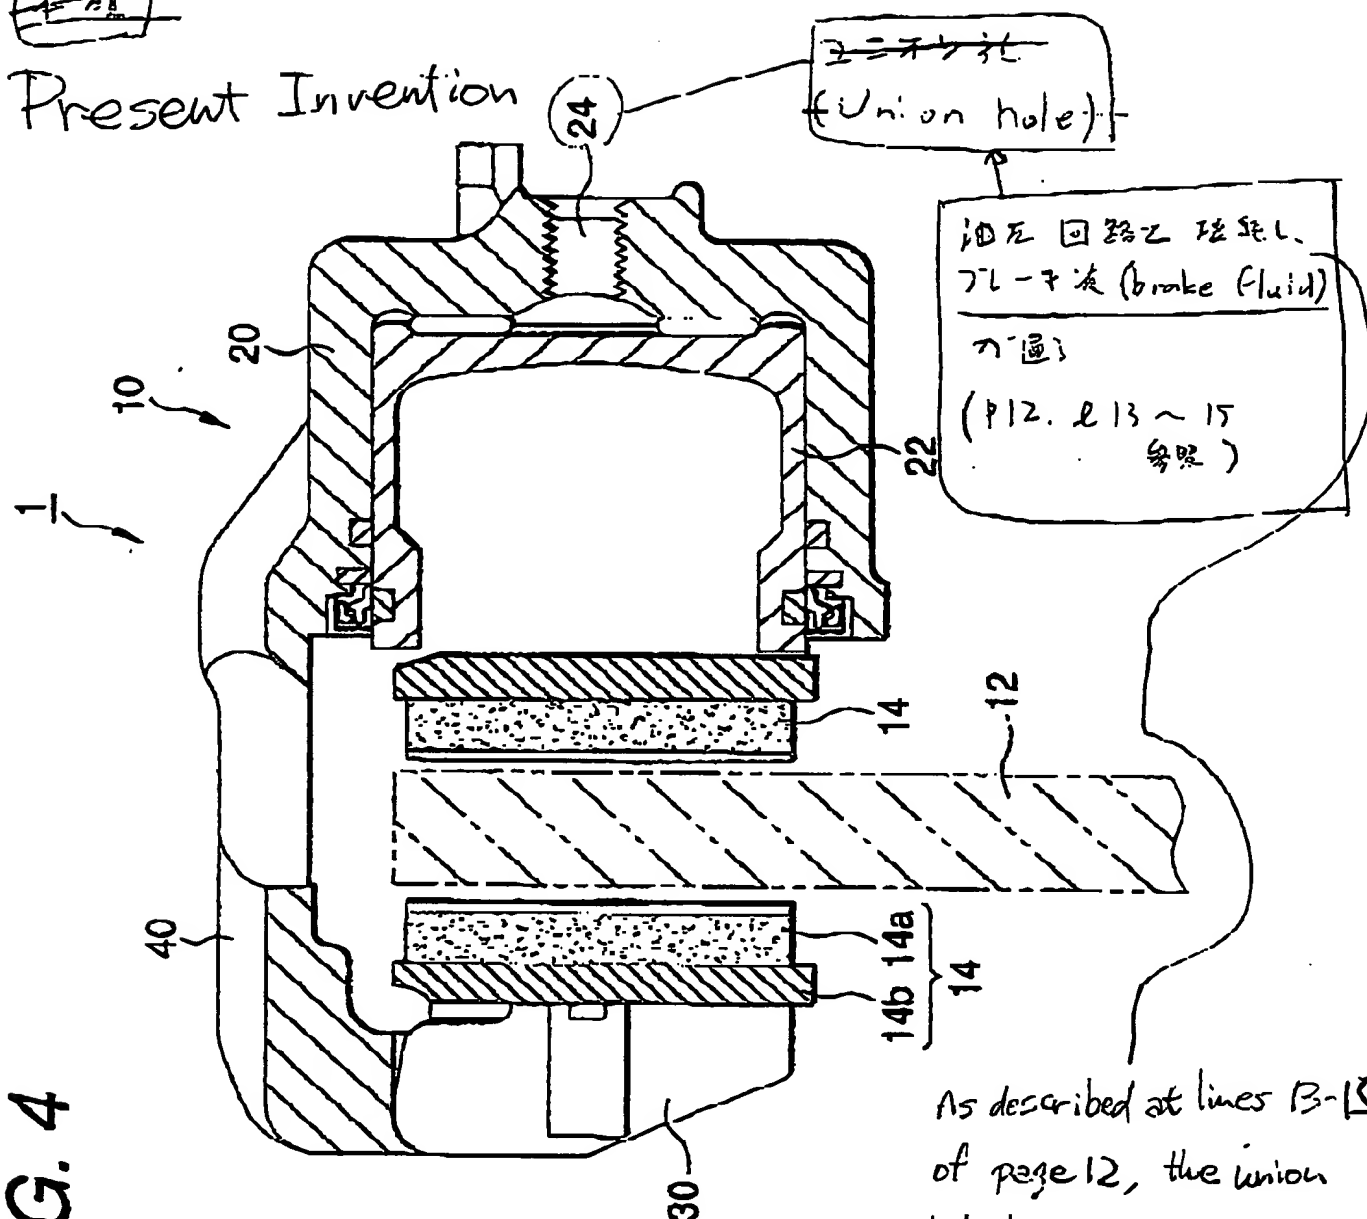 Present Invention
24
ユニオン孔
(Union hole)
油圧回路と接続し、
ブレーキ液 (brake fluid)
が通る
(P12. l 13 ~ 15
参照)
20
10
1
22
14
12
40
14a
14b
14
30
G. 4
As described at lines 13-15
of page 12, the union